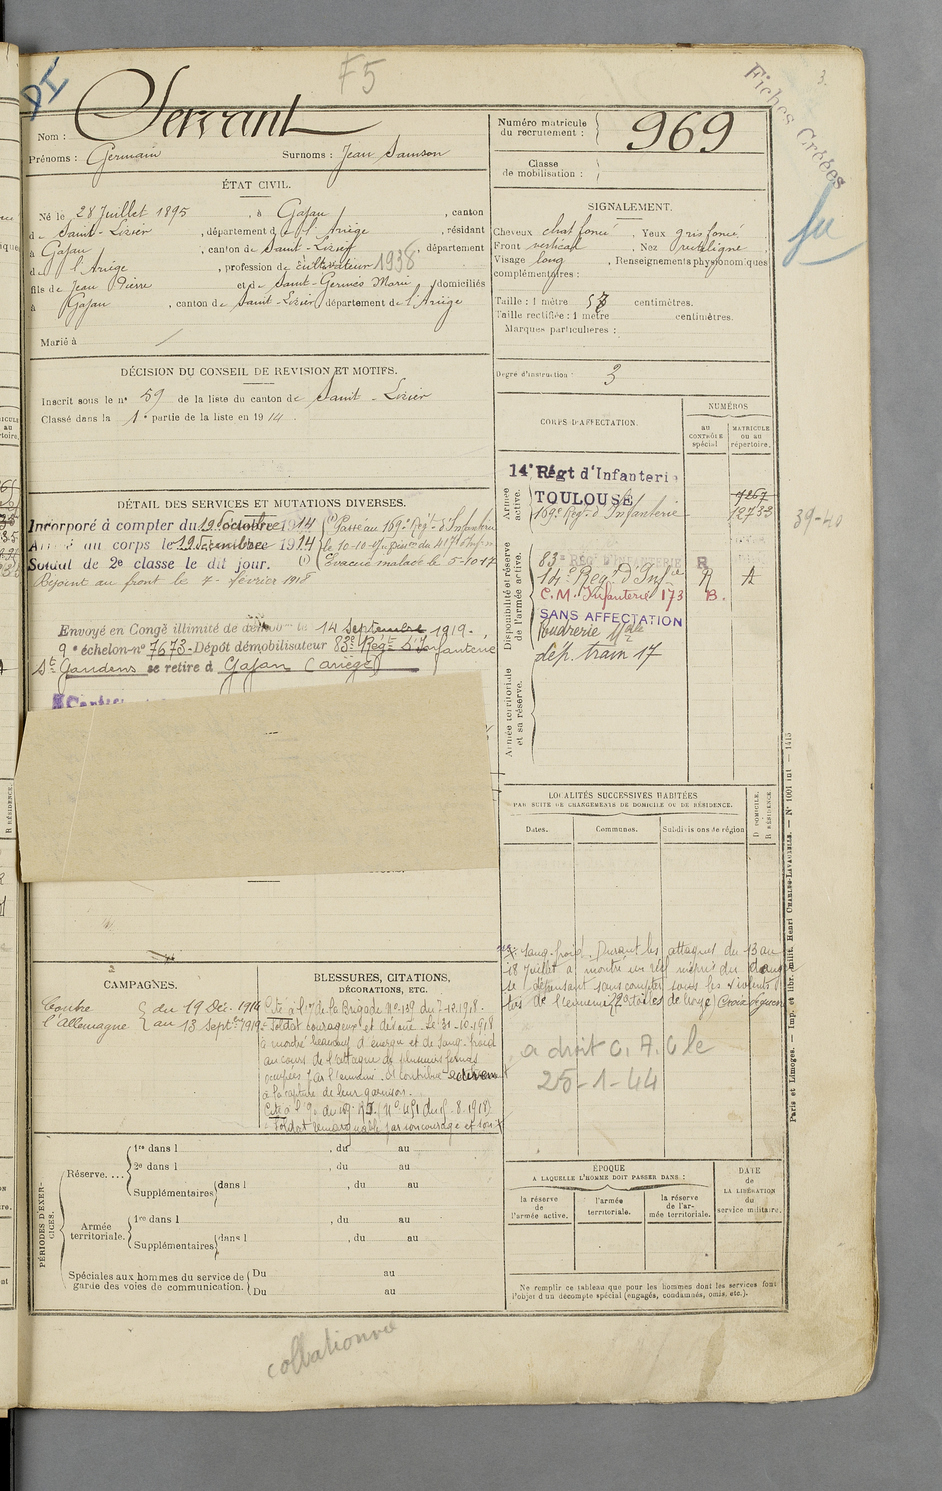 F5
Fiches Créées
Nom : Servant
Prénoms : Germain Surnoms : Jean Samson
Numéro matricule
du recrutement : 969
Classe
de mobilisation :
ÉTAT CIVIL.
Né le 28 Juillet 1895, à Gajan, canton
de Saint-Lizier, département de l'Ariège, résidant
à Gajan, canton de Saint-Lizier, département
d l'Ariège, profession de cultivateur 1938
fils de Jean Pierre et de Saint-Germès Marie, domiciliés
à Gajan, canton de Saint-Lizier, département de l'Ariège
Marié à
SIGNALEMENT.
Cheveux chat foncé, Yeux gris foncé
Front vertical, Nez rectiligne
Visage long, Renseignements physionomiques
complémentaires :
Taille : 1 mètre 58 centimètres.
Taille rectifiée : 1 mètre centimètres.
Marques particulières :
Degré d'instruction : 3
DÉCISION DU CONSEIL DE REVISION ET MOTIFS.
Inscrit sous le n° 59 de la liste du canton de Saint-Lizier
Classé dans la 1e partie de la liste en 1914
DÉTAIL DES SERVICES ET MUTATIONS DIVERSES.
Incorporé à compter du 19 octobre 1914 (1) Passé au 169e Rég. d'Infanterie
Arrivé au corps le 19 Décembre 1914 le 10-10-17
Soldat de 2e classe le dit jour. (1) Evacué malade le 5-10-17
Rejoint au front le 7-février 1918
Envoyé en Congé illimité de le 14 Septembre 1919.
9e échelon n° 7673 - Dépôt démobilisateur 83e Régt d'Infanterie
St Gaudens se retire à Gajan (Ariège)
CORPS D'AFFECTATION.
NUMÉROS
au
CONTRÔLE
spécial
MATRICULE
ou au
répertoire.
Armée
active.
14e Régt d'Infanterie
TOULOUSE
169e Régt d'Infanterie
9267
12733
39-40
Disponibilité et réserve
de l'armée active.
83e REGT D'INFANTERIE R
Régt d'Infie A A
C.M. Infanterie 173 B.
SANS AFFECTATION
Poudrerie
dép. train 17
Armée territoriale
et sa réserve.
LOCALITÉS SUCCESSIVES HABITÉES
PAR SUITE DE CHANGEMENTS DE DOMICILE OU DE RÉSIDENCE.
Dates.
Communes.
Subdivisions de région
D DOMICILE.
R RÉSIDENCE
sang-froid. Durant les attaques du 13 au
18 Juillet a montré un réel mépris du danger
se dépensant sans compter sous les violents
tirs de l'ennemi (Croix de guerre
a droit C.A.C le
25-1-44
CAMPAGNES.
Contre
l'Allemagne
du 19 Déc. 1914
au 13 Septbre 1919
BLESSURES, CITATIONS,
DÉCORATIONS, ETC.
Cité à l'o. de la Brigade N° 139 du 7-12-1918.
Soldat courageux et dévoué. Le 31-10-1918
a montré beaucoup d'énergie et de sang-froid
au cours de l'attaque de plusieurs fermes
occupées par l'ennemi. A contribué
à la capture de leur garnison.
Cité à l'o. du 169e RI. (N° 451 du -8-1918)
Soldat remarquable par son courage et son
PÉRIODES D'EXERCICES.
Réserve....
1re dans l , du au
2e dans l , du au
Supplémentaires dans l , du au
Armée
territoriale.
1re dans l , du au
Supplémentaires dans l , du au
Spéciales aux hommes du service de
garde des voies de communication.
Du au
Du au
ÉPOQUE
A LAQUELLE L'HOMME DOIT PASSER DANS :
la réserve
de l'armée active.
l'armée
territoriale.
la réserve
de l'armée territoriale.
DATE
de
LA LIBÉRATION
du
service militaire.
Ne remplir ce tableau que pour les hommes dont les services font
l'objet d'un décompte spécial (engagés, condamnés, omis, etc.).
Paris et Limoges. — Imp. et libr. milit. Henri CHARLES-LAVAUZELLE. — N° 1001 int — 1415
collationné